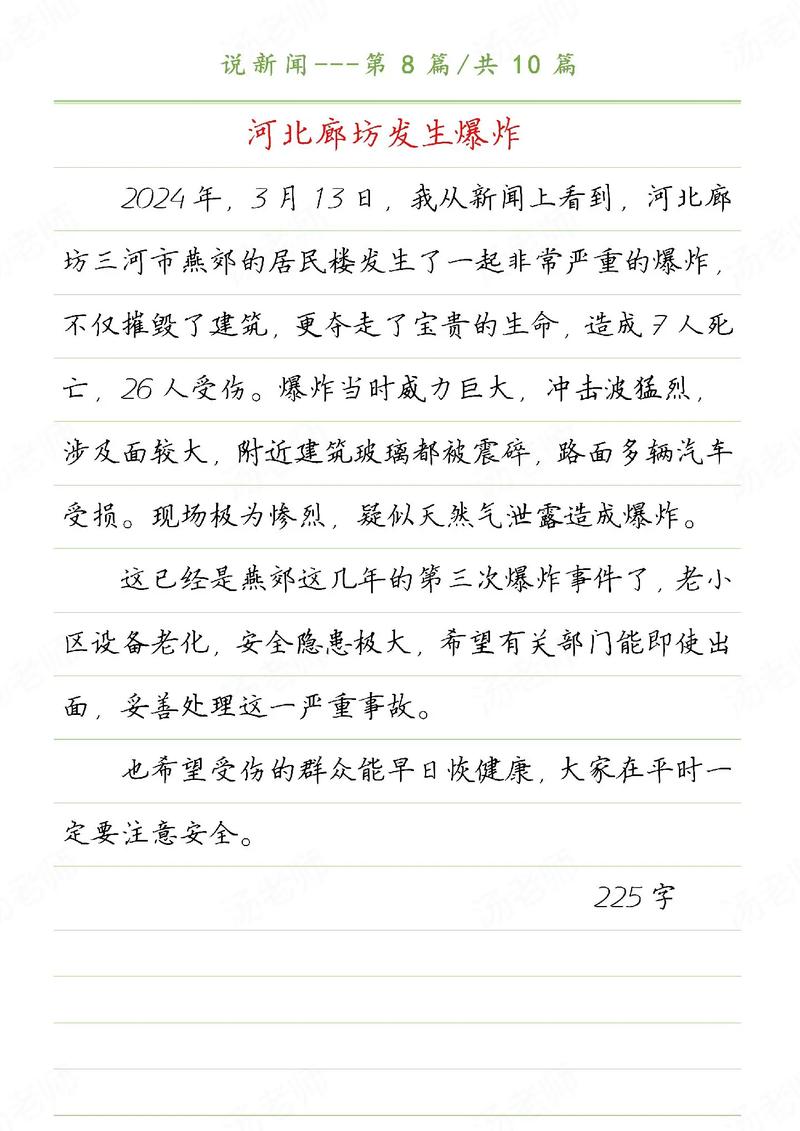 说新闻---第 8 篇/共 10 篇
河北廊坊发生爆炸
2024年，3月13日，我从新闻上看到，河北廊
坊三河市燕郊的居民楼发生了一起非常严重的爆炸，
不仅摧毁了建筑，更夺走了宝贵的生命，造成7人死
亡，26人受伤。爆炸当时威力巨大，冲击波猛烈，
涉及面较大，附近建筑玻璃都被震碎，路面多辆汽车
受损。现场极为惨烈，疑似天然气泄露造成爆炸。
这已经是燕郊这几年的第三次爆炸事件了，老小
区设备老化，安全隐患极大，希望有关部门能即使出
面，妥善处理这一严重事故。
也希望受伤的群众能早日恢健康，大家在平时一
定要注意安全。
225字
汤老师